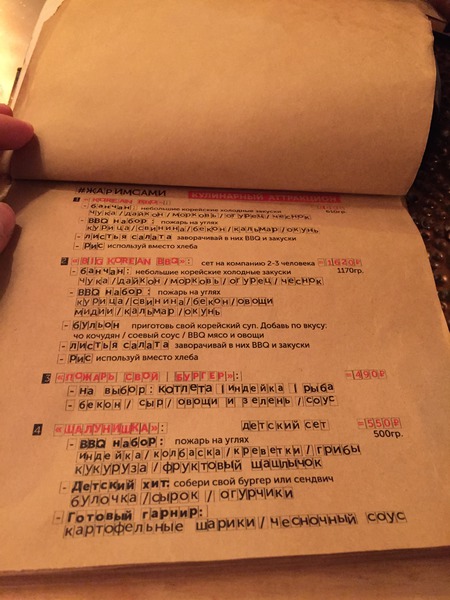 #ЖАРИМСАМИ КУЛИНАРНЫЙ АТТРАКЦИОН
1 «KOREAN BBQ»:
- банчан: небольшие корейские холодные закуски 610гр.
чука/дайкон/морковь/огурец/чеснок
- BBQ набор: пожарь на углях
курица/свинина/бекон/кальмар/окунь
- листья салата заворачивай в них BBQ и закуски
- Рис используй вместо хлеба
2 «BIG KOREAN BBQ»: сет на компанию 2-3 человека =1620₽
- банчан: небольшие корейские холодные закуски 1170гр.
чука/дайкон/морковь/огурец/чеснок
- BBQ набор: пожарь на углях
курица/свинина/бекон/овощи
мидии/кальмар/окунь
- бульон приготовь свой корейский суп. Добавь по вкусу:
чо кочудян / соевый соус / BBQ мясо и овощи
- листья салата заворачивай в них BBQ и закуски
- Рис используй вместо хлеба
3 «ПОЖАРЬ СВОЙ БУРГЕР»: =490₽
- на выбор: котлета | индейка | рыба
- бекон/сыр/овощи и зелень/соус
4 «ШАЛУНИШКА»: детский сет =550₽
- BBQ набор: пожарь на углях 500гр.
индейка/колбаска/креветки/грибы
кукуруза/фруктовый шашлычок
- Детский хит: собери свой бургер или сендвич
булочка/сырок/огурчики
- Готовый гарнир:
картофельные шарики/чесночный соус